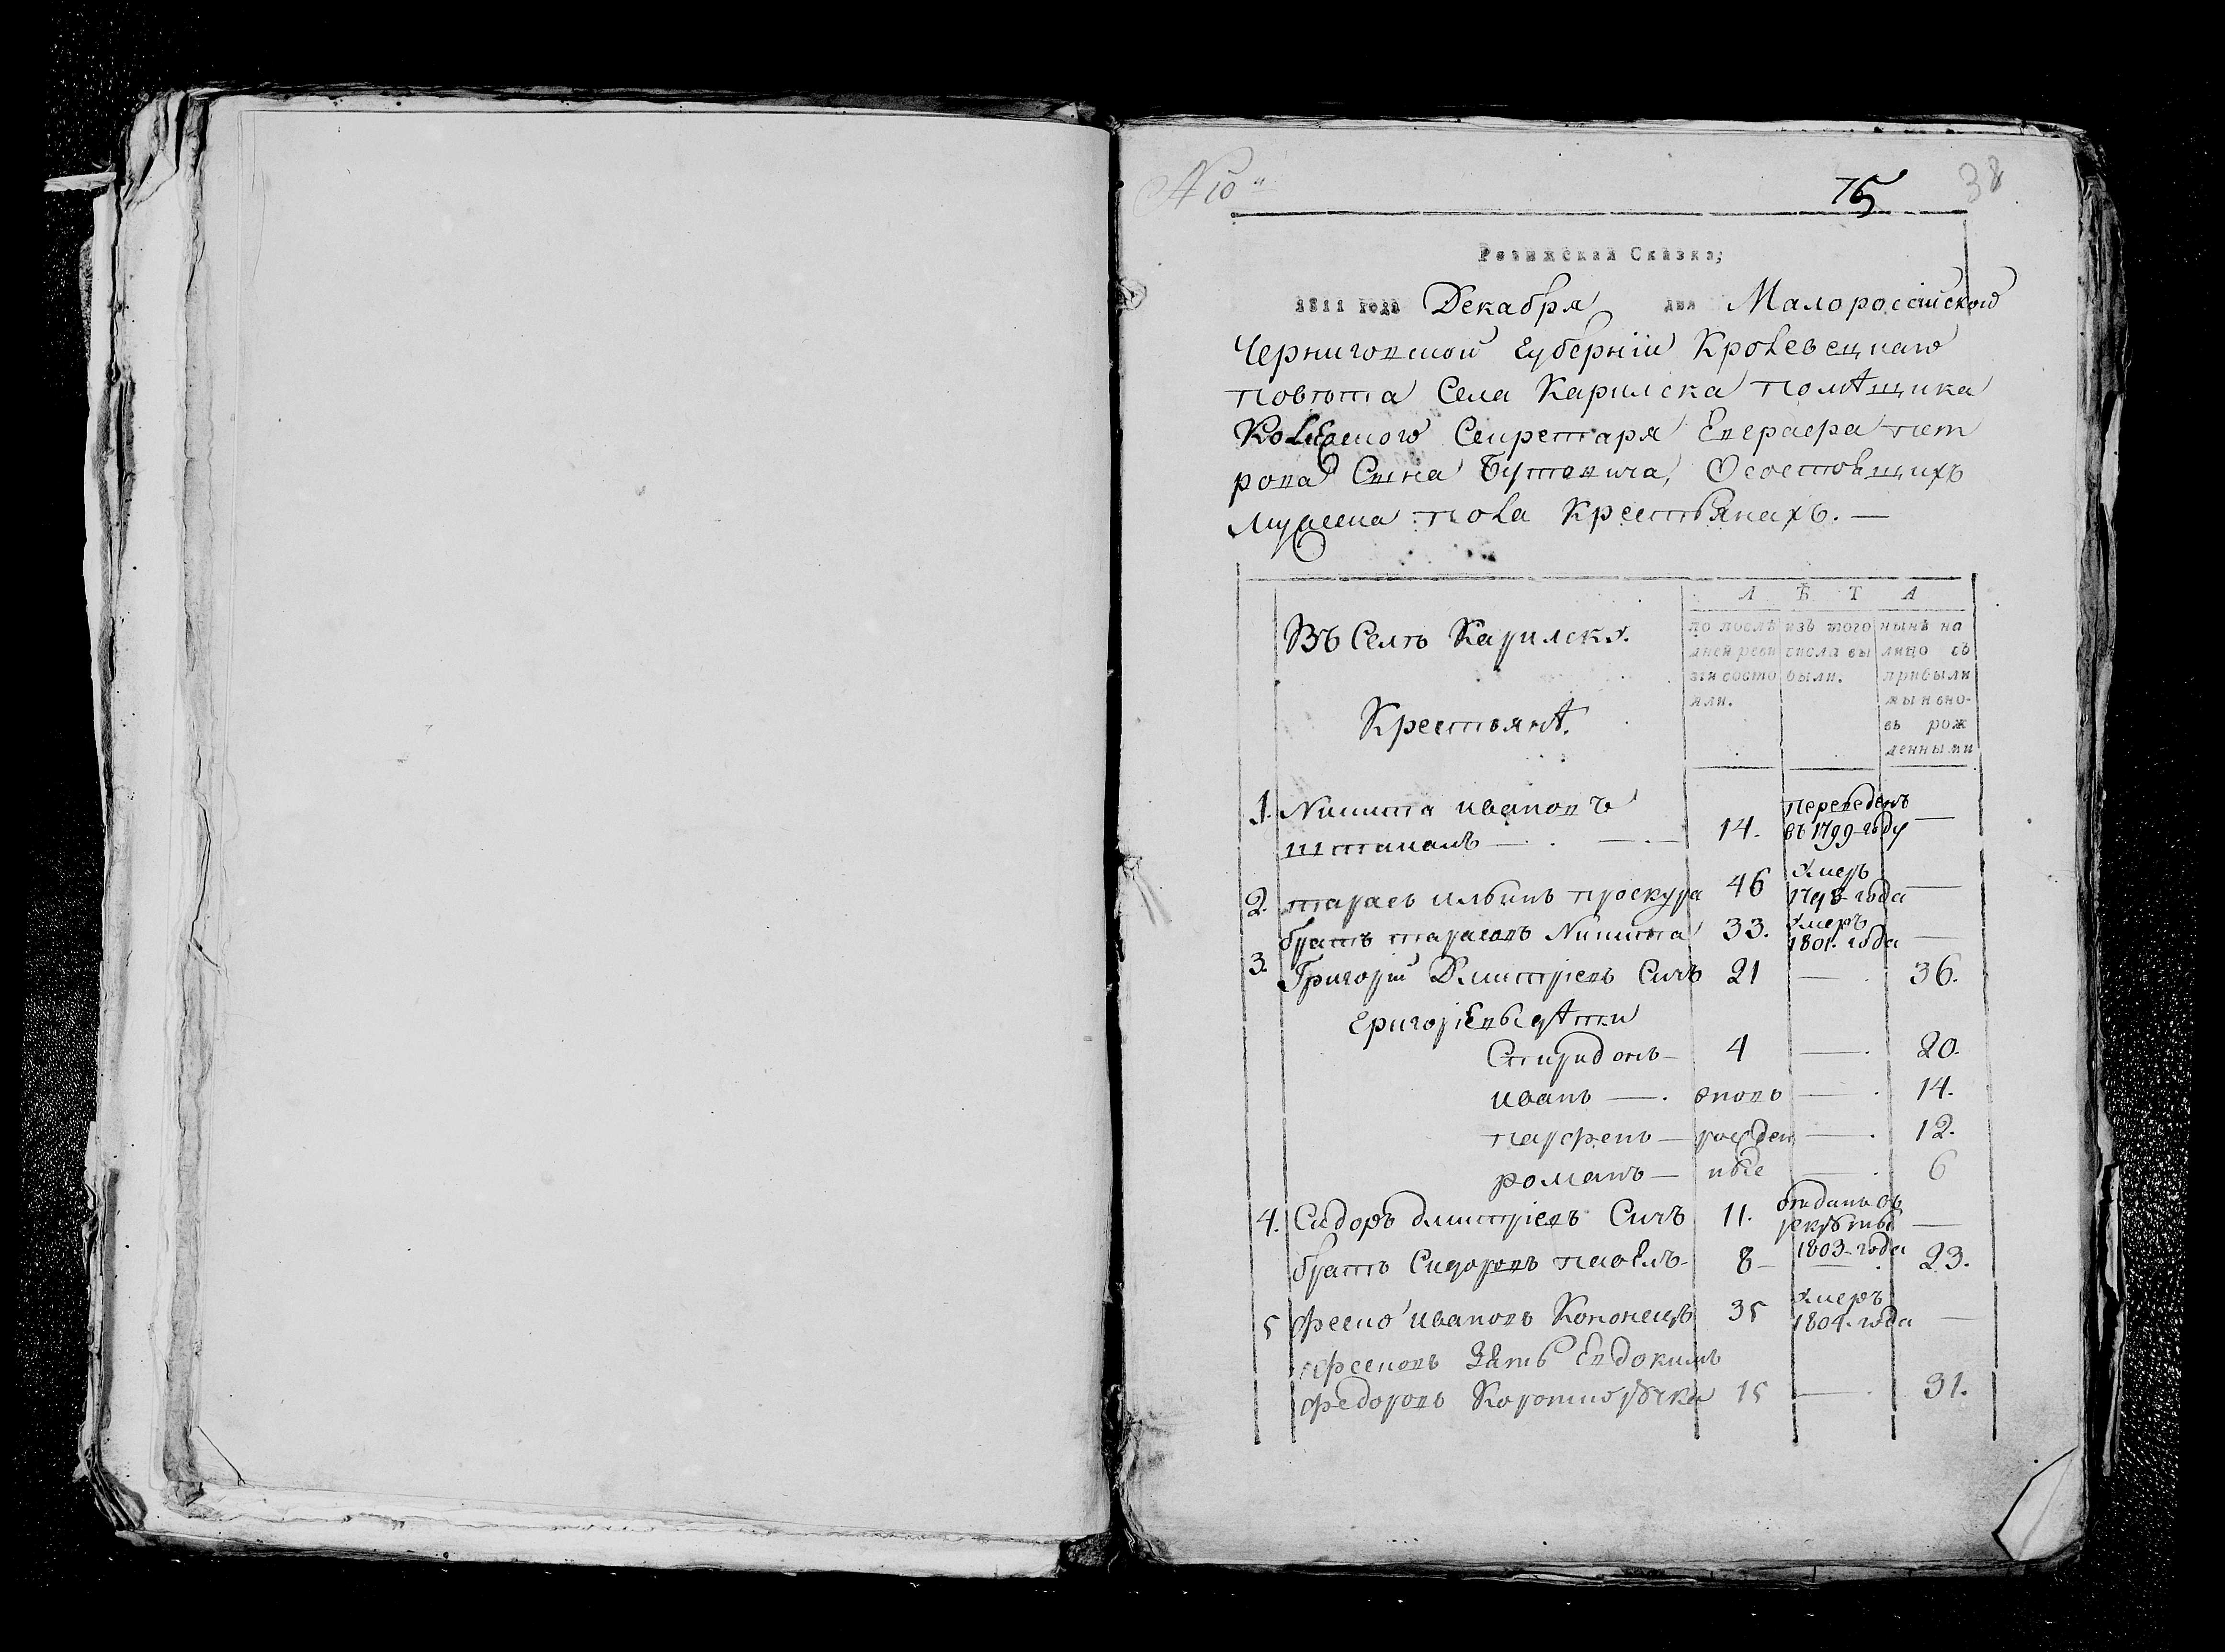 № 10
75 38
Ревижская Сказка;
1811 года Декабря дня Малороссійской
Черниговской Губерніи Кролевецкаго
повѣта Села Карилска помѣщика
Колежского Секретаря Евграфа пет
рова Сына Бутовича, Осостоящихъ
мужеска пола Крестьянахъ. —
Въ Селѣ Карилску.
Крестьянѣ.
Л Ѣ Т А
по послѣ изъ того нынѣ на
дней реви числа вы лицо съ
зіи состо были. прибыли
яли. мы и вно-
въ рож
денными
1. Никита ивановъ переведенъ
14. въ 1799 году —
2. тарасъ ильинъ проскура 46 умеръ 1798 года —
братъ тарасовъ Никита 33. умеръ 1801. года —
3. Григорій Дмитріевъ Сичъ 21 — 36.
Григоріевы дѣти
Спиридонъ — 4 — 20.
иванъ — вновь — 14.
парфенъ — рожден — 12.
романъ — ные — 6
4. Сидоръ дмитріевъ Сичъ 11. отданъ въ рекруты 1803 года —
братъ Сидоровъ павелъ 8 — 23.
5 феско ивановъ Кононецъ 35 умеръ 1804. года —
зять Евдокимъ
федоровъ Короткоручка 15 — 31.